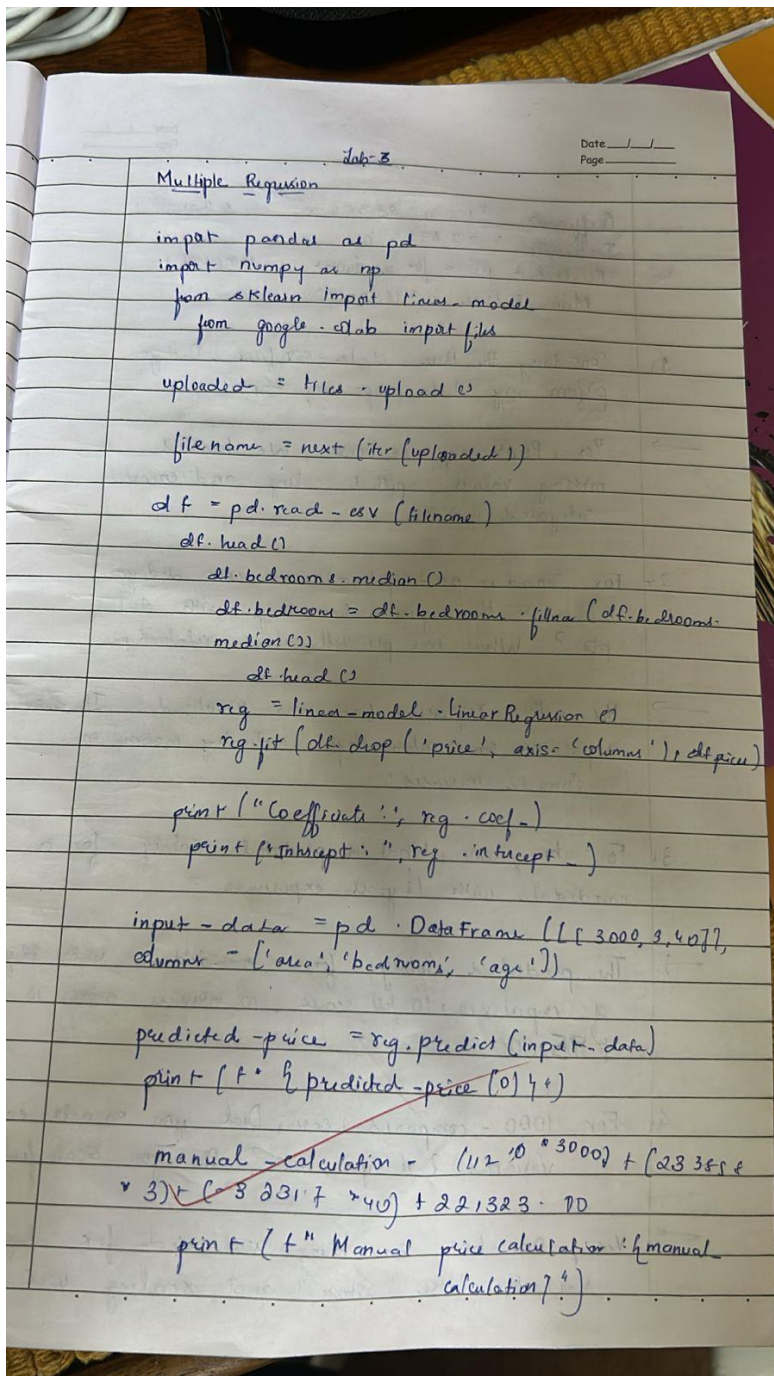 Lab-3
Date
Page
Multiple Regression
import pandas as pd
import numpy as np
from sklearn import linear_model
from google.colab import files
uploaded = files.upload()
filename = next (iter (uploaded))
df = pd.read_csv (filename)
df.head ()
df.bedrooms.median ()
df.bedrooms = df.bedrooms.fillna (df.bedrooms.
median ())
df.head ()
reg = linear_model.LinearRegression ()
reg.fit (df.drop ('price', axis='columns'), df.price)
print ("Coefficients:", reg.coef_)
print ("Intercept:", reg.intercept_)
input_data = pd.DataFrame ([[3000, 3, 40]],
columns = ['area', 'bedrooms', 'age'])
predicted_price = reg.predict (input_data)
print (f" {predicted_price [0]}")
manual_calculation = * 3000) +
* 3) + * 40) + 221323.00
print (f" Manual price calculation : {manual_
calculation}")